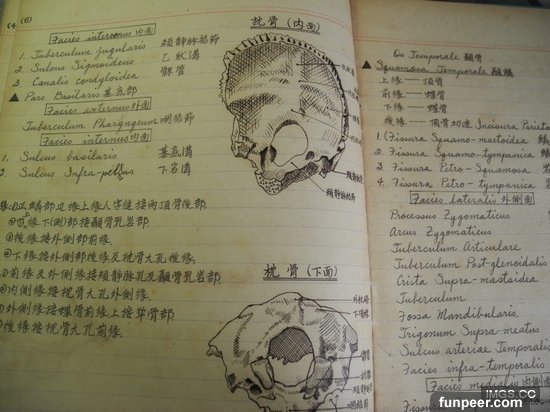 (4) (6)
Facies internus 内面
1. Tuberculum jugularis 頚静脉結節
2. Sulcus Sigmoideus 乙狀溝
3. Canalis condyloidea 髁管
▲ Pars Basilaris 基底部
Facies externus 外面
Tuberculum Pharyngeum 咽結節
Facies internus 内面
1. Sulcus basilaris 基底溝
2. Sulcus Infra-petrus 下岩溝
緣:①正鱗部边緣上緣人字縫接兩頂骨後部
④下緣下(側)部接顳骨乳岩部
③後緣接外側部前緣
④下緣接外側部後緣及枕骨大孔後緣
①前緣及外側緣接頚静脉孔及顳骨乳岩部
②内側緣接枕骨大孔外側緣
外側緣接蝶骨前緣上接草骨部
後緣接枕骨大孔前緣
枕骨 (内面)
頚静脉結節
枕骨 (下面)
外枕嵴
下項線
咽結節
Os Temporale 顳骨
▲ Squamosa Temporale 顳鱗
上緣—頂骨
前緣—蝶骨
下緣—蝶骨
後緣—頂骨切迹 Incisura Parieta
1. (Fissura Squamo-mastoidea
2. (Fissura Squamo-tympanica
3. Fissura Petro-Squamosa
4. Fissura Petro-tympanica
Facies lateralis 外側面
Processus Zygomaticus
Arcus Zygomaticus
Tuberculum Articulare
Tuberculum Post-glenoidalis
Crista Supra-mastoidea
Tuberculum
Fossa Mandibularis
Trigonum Supra-meatus
Sulcus arteriae Temporalis
Facies infra-temporalis
Facies medialis 内側面
IMGS.CC
funpeer.com